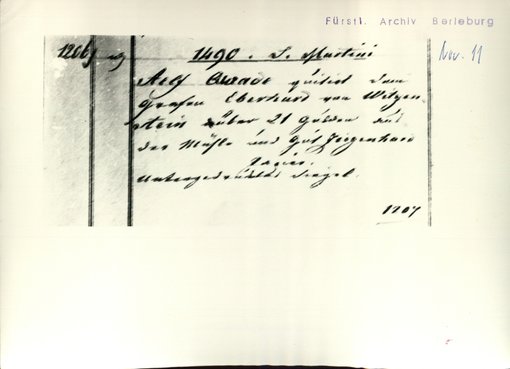 Fürstl. Archiv Berleburg
Nov. 11
1206 1490. S. Martini
Adolf quitirt dem
Grafen Eberhard von Witgen-
stein über 21 Gulden aus
der Mühle und Gut
untergedrücktes Siegel.
1707